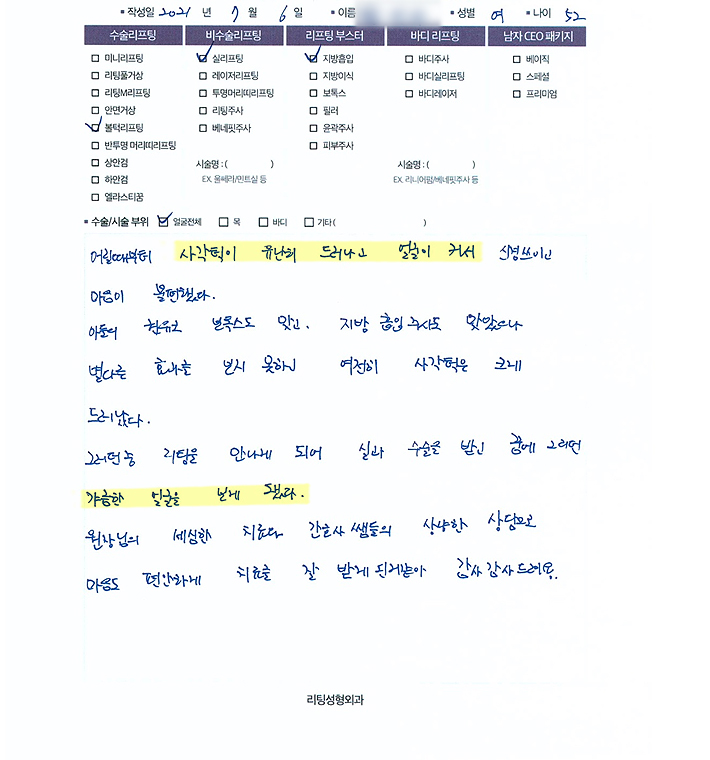 ▪작성일 2021 년 7 월 6 일 ▪이름 ▪성별 여 ▪나이 52
수술리프팅 비수술리프팅 리프팅 부스터 바디 리프팅 남자 CEO 패키지
미니리프팅 실리프팅 지방흡입 바디주사 베이직
리팅풀거상 레이저리프팅 지방이식 바디실리프팅 스페셜
리팅M리프팅 투명머리띠리프팅 보톡스 바디레이저 프리미엄
안면거상 리팅주사 필러
볼턱리프팅 베네핏주사 윤곽주사
반투명 머리띠리프팅 피부주사
상안검 시술명 : ( ) 시술명 : ( )
하안검 EX. 울쎄라/민트실 등 EX. 리니어펌/베네핏주사 등
엘라스티꿈
▪ 수술/시술 부위 얼굴전체 목 바디 기타 ( )
어릴때부터 사각턱이 유난히 드러나고 얼굴이 커서 신경쓰이고
마음이 불편했다.
아들의 권유로 보톡스도 맞고, 지방 흡입 주사도 맞았으나
별다른 효과를 보지 못하고 여전히 사각턱은 크게
드러났다.
그러던 중 리팅을 만나게 되어 실과 수술을 받고 꿈에 그리던
갸름한 얼굴을 보게 됐다.
원장님의 세심한 치료와 간호사 쌤들의 상냥한 상담으로
마음도 편안하게 치료를 잘 받게 된거같아 감사 감사드려요.
리팅성형외과